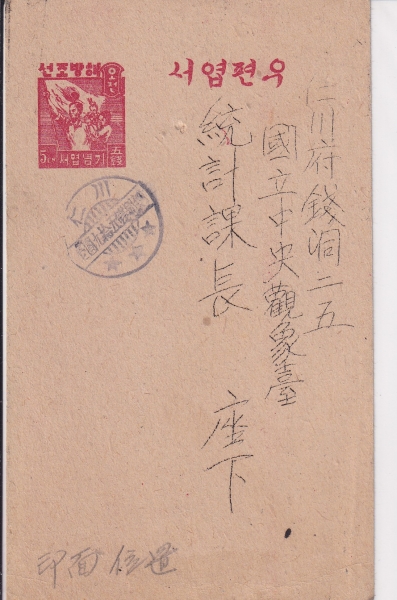 우편엽서
해방조선
기념엽서
5전
五錢
仁川府錢洞二五
國立中央觀象臺
統計課長 座下
仁川
印面